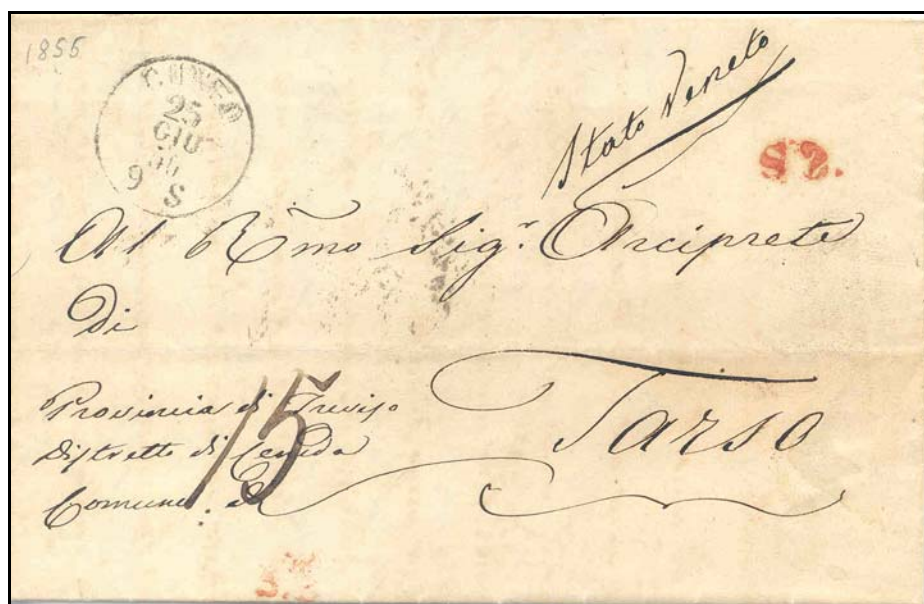 1855
CUNEO
25
GIU
9 S
Stato Veneto
S2.
Al R͞mo Sig.r Arciprete
Di
Tarso
15
Provincia di Treviso
Distretto di Ceneda
Comune di